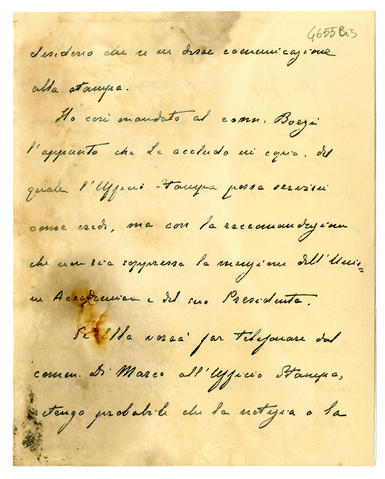 4655 Bis
desiderio che se ne desse comunicazione
alla stampa.
Ho così mandato al comm. Boezi
l'appunto che Le accludo in copia, del
quale l'Ufficio Stampa possa servirsi
come crede, ma con la raccomandazione
che non sia soppressa la menzione dell'Unio-
ne Accademica e del suo Presidente.
Se Ella vorrà far telefonare dal
comm. Di Marco all'Ufficio Stampa,
ritengo probabile che la notizia o la